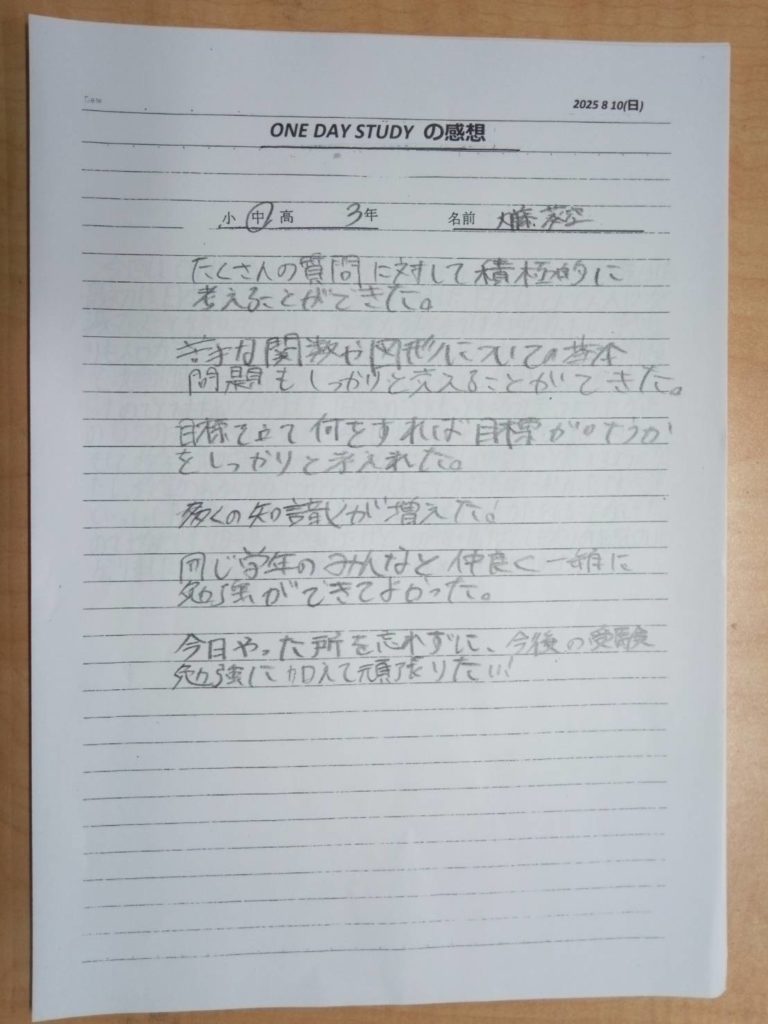 2025 8 10(日)
ONE DAY STUDY の感想
小 中 高 3年 名前
たくさんの質問に対して積極的に
考えることができた。
苦手な関数や図形についての基本
問題もしっかりと考えることができた。
目標を立て何をすれば目標が
をしっかりと考えれた。
多くの知識が増えた!
同じ学年のみんなと仲良く一緒に
勉強ができてよかった。
今日やった所を忘れずに、今後の受験
勉強に加えて頑張りたい!